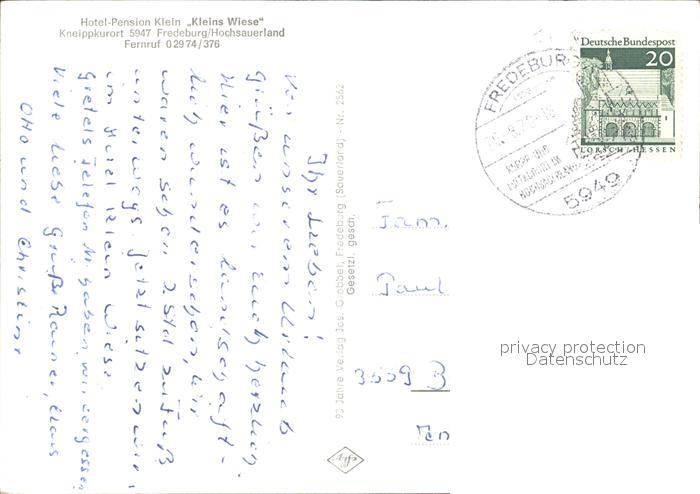 Hotel-Pension Klein „Kleins Wiese"
Kneippkurort 5947 Fredeburg/Hochsauerland
Fernruf 02974/376
Ihr Lieben!
Von unserem Urlaub
grüßen wir Euch herzlich.
Hier ist es landschaft-
lich wunderschön, wir
waren schon 2 Std zu Fuß
unterwegs. Jetzt sitzen wir
im Hotel Klein Wiese.
Gretels Telefon Nr. haben wir vergessen
Viele liebe Grüße Rainer, Klaus
Otto und Christine
90 Jahre Verlag Jos. Grobbel, Fredeburg (Sauerland) - Nr. 2562
Gesetzl. gesch.
Deutsche Bundespost
20
LORSCH/HESSEN
FREDEBURG
5949
Fam.
Paul
3559 B
privacy protection
Datenschutz